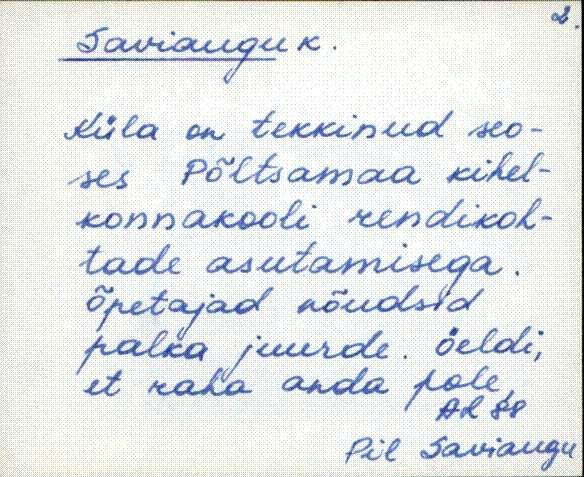 2.
Saviaugu k.
Küla on tekkinud seo-
ses Põltsamaa kihel-
konnakooli rendikoh-
tade asutamisega.
Õpetajad nõudsid
palka juurde. Öeldi,
et raha anda pole,
AR 88
Pil Saviaugu